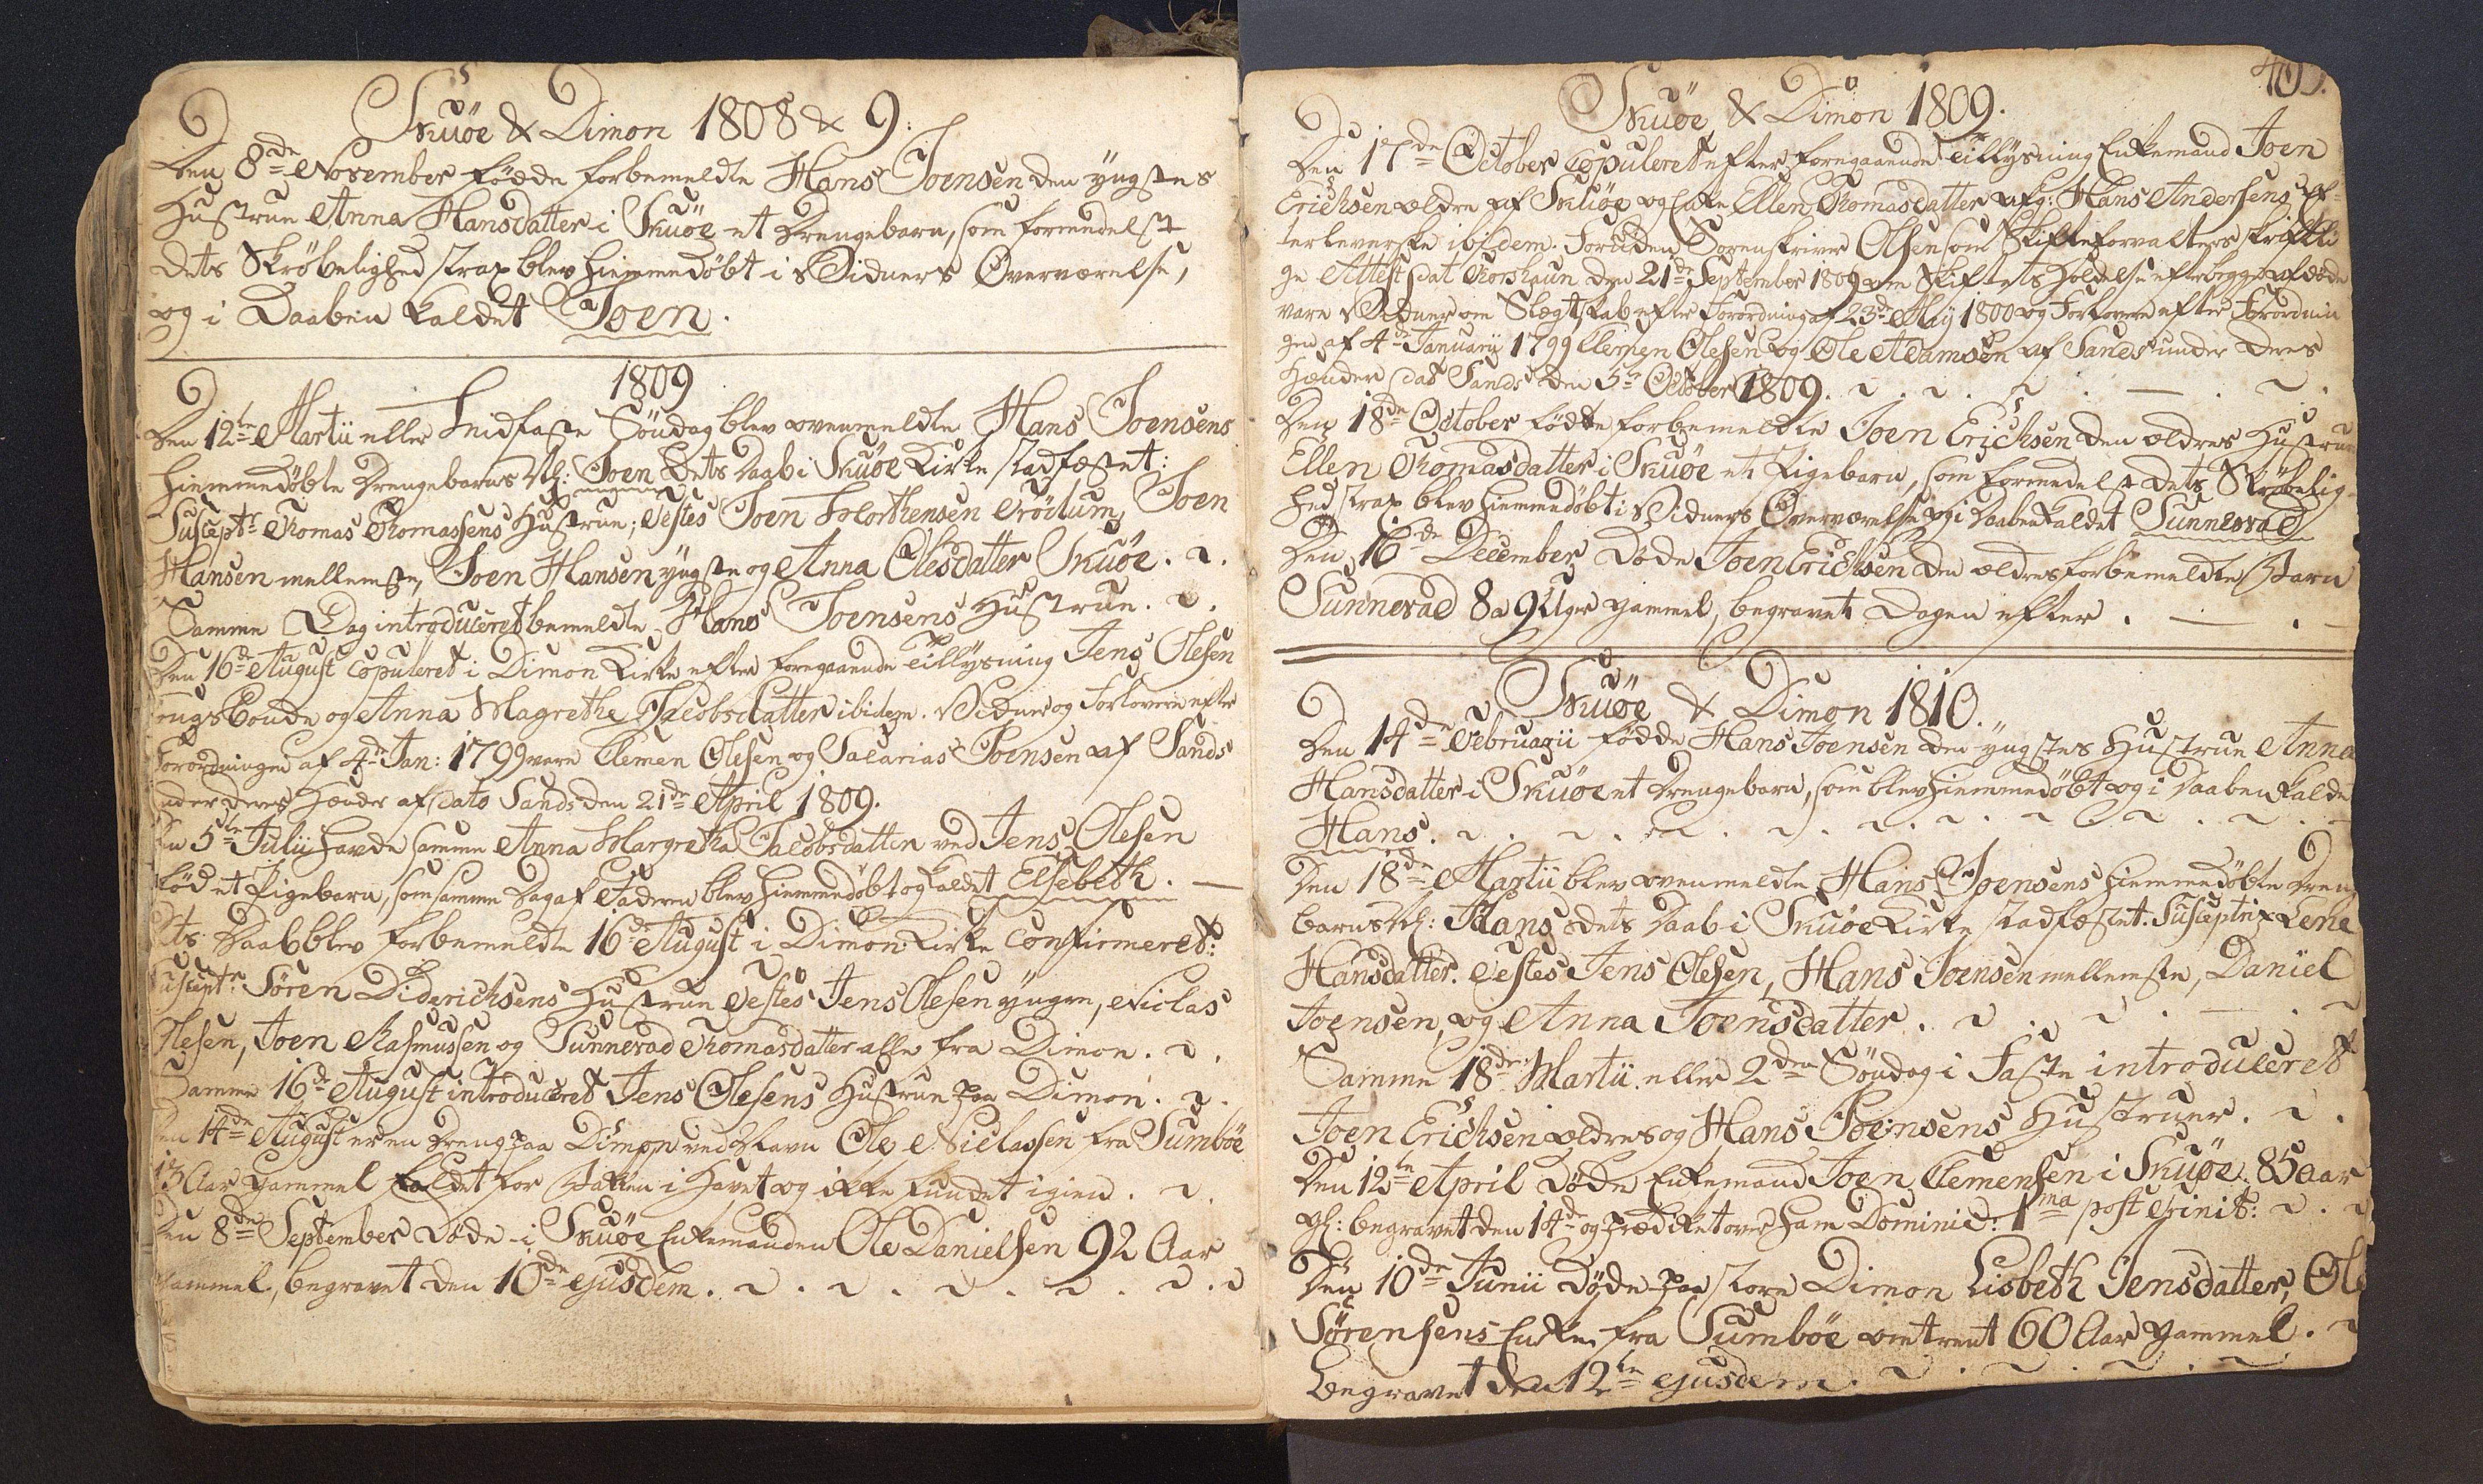 Skuöe & Dimon 1808 & 9.
Den 8de November födde forbemeldte Hans Joensen den yngstes
Hustrue Anna Hansdatter i Skuöe et Drengebarn, som formedelst
dets Skröbelighed strax blev hiemmedöbt i Vidners Overværelse,
og i Daaben kaldet Joen.
1809
Den 12te Martii eller Midfaste Söndag blev ovenmeldte Hans Joensens
hiemmedöbte Drengebarns Nl: Joen dets Daab i Skuöe Kirke stadfæstet:
Suscept: Thomas Thomassens Hustrue; Testes Joen Morthensen Tröilum, Joen
Hansen mellemste, Joen Hansen yngste og Anna Olesdatter Skuöe.
Samme Dag introduceret bemeldte Hans Joensens Hustrue.
Den 16de August copuleret i Dimon Kirke efter foregaaende Tillysning Jens Olesen
ongsbonde og Anna Magrethe Jacobsdatter ibidem. Vidner og Forlovere efter
Forordningen af 4de Jan: 1799 vare Clemen Olesen og Sacarias Joensen af Sands
nder deres Hænder af dato Sands den 21de April 1809.
Den 5te Julii havde samme Anna Margretha Jacobsdatter ved Jens Olesen
föd et Pigebarn, som samme Dag af Faderen blev hiemmedöbt og kaldet Elsebeth.
Dets Daab blev forbemeldte 16de August i Dimon Kirke confirmeret:
Suscept: Sören Diderichsens Hustrue Testes Jens Olesen yngre, Niclas
Olesen, Joen Rasmussen og Sunnevad Thomasdatter alle fra Dimon.
Samme 16de August introduceret Jens Olesens Hustrue paa Dimon.
Den 14de August er en Dreng paa Dimon ved Navn Ole Niclassen fra Sumböe
13 Aar gammel faldet for Bakken i Havet og ikke fundet igien.
Den 8de September döde i Skuöe Enkemanden Ole Danielsen 92 Aar
gammel, begravet den 10de ejusdem.
Skuöe & Dimon 1809.
Den 17de October copuleret efter foregaaende Tillysning Enkemand Joen
Erichsen ældre af Skuöe og Enke Ellen Thomasdatter afg: Hans Andersens Ef-
terleverske ibidem. Foruden Sorenskriver Olsen som Skifteforvalters skriftli
ge Attest dat Thorshaun den 21de September 1809 om Skiftets Holdelse efter begge afdöde
vare Vidner om Slægtskab efter Forordning af 23de May 1800 og Forlovere efter Forordnin
gen af 4de Januarii 1799 Clemen Olesen og Ole Adamsen af Sands under deres
Hænder dat Sands den 5te October 1809.
Den 18de October födte forbemeldte Joen Erichsen den ældres Hustrue
Ellen Thomasdatter i Skuöe et Pigebarn, som formedelst dets Skröbelig-
hed strax blev hiemmedöbt i Vidners Overværelse og i Daaben kaldet Sunnevad
Den 16de December döde Joen Erichsen den ældres forbemeldte Barn
Sunnevad 8 a 9 Uger gammel, begravet Dagen efter.
Skuöe & Dimon 1810.
Den 14de Februarii födde Hans Joensen den yngstes Hustrue Anna
Hansdatter i Skuöe et Drengebarn, som blev hiemmedöbt og i Daaben kalde
Hans.
Den 18de Martii blev ovenmeldte Hans Joensens hiemmedöbte Dreng
barns Nl: Hans dets Daab i Skuöe Kirke stadfæstet. Susceptrix Lene
Hansdatter. Testes Jens Olesen, Hans Joensen mellemste, Daniel
Joensen, og Anna Joensdatter.
Samme 18de Martii eller 2den Söndag i Faste introduceret
Joen Erichsen ældres og Hans Joensens Hustruer.
Den 12te April döde Enkemand Joen Clemensen i Skuöe 85 Aar
gl: begravet den 14de og prædiket over ham Dominic: 1ma post Trinit:
Den 10de Junii döde paa store Dimon Lisbeth Jensdatter, Ole
Sörensens Enke fra Sumböe omtrent 60 Aar gammel.
Begravet den 12te ejusdem.